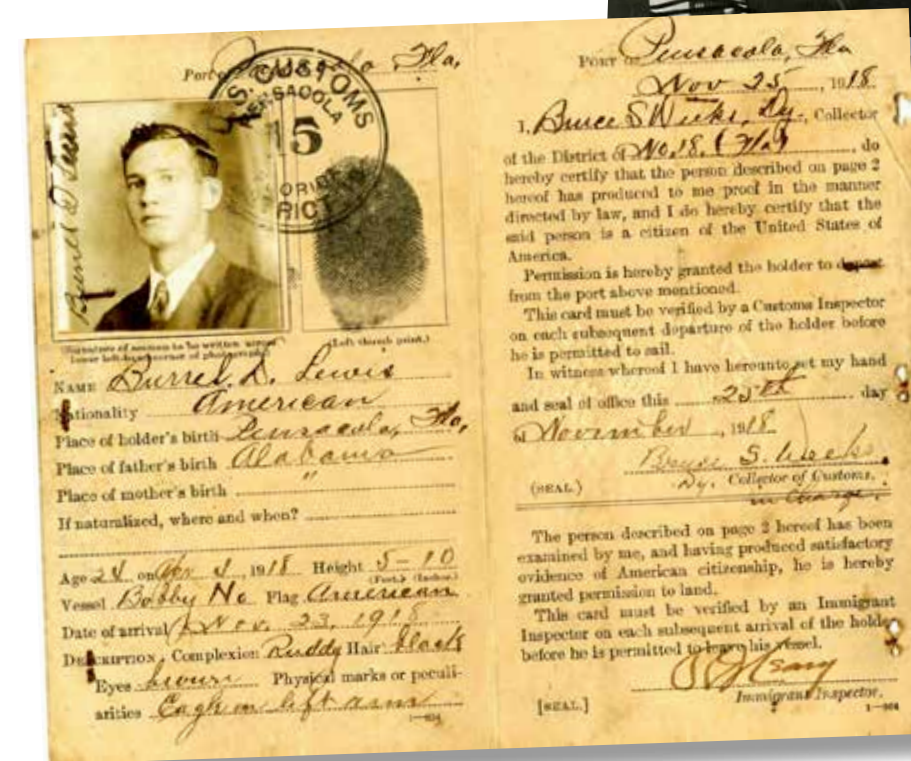 Port of Pensacola Fla,
U.S. CUSTOMS
PENSACOLA
15
FLORIDA
DISTRICT
Burrel D Lewis
(Signature of seaman to be written across
lower left-hand corner of photograph)
(Left thumb print.)
NAME Burrel. D. Lewis
Nationality American
Place of holder's birth Pensacola, Fla,
Place of father's birth Alabama
Place of mother's birth "
If naturalized, where and when?
Age 24 on 4, 1918 Height 5-10
(Feet.) (Inches.)
Vessel Bobby No Flag American
Date of arrival Nov. 23, 1918
DESCRIPTION, Complexion Ruddy Hair black
Eyes brown Physical marks or peculi-
arities Eagle on left arm
PORT OF Pensacola, Fla
Nov 25, 1918
I, Bruce S Weeks, Dy., Collector
of the District of No, 18. (Fla), do
hereby certify that the person described on page 2
hereof has produced to me proof in the manner
directed by law, and I do hereby certify that the
said person is a citizen of the United States of
America.
Permission is hereby granted the holder to depart
from the port above mentioned.
This card must be verified by a Customs Inspector
on each subsequent departure of the holder before
he is permitted to sail.
In witness whereof I have hereunto set my hand
and seal of office this 25th day
of November, 1918
Bruce S. Weeks.
(SEAL.) Dy. Collector of Customs.
in Charge.
The person described on page 2 hereof has been
examined by me, and having produced satisfactory
evidence of American citizenship, he is hereby
granted permission to land.
This card must be verified by an Immigrant
Inspector on each subsequent arrival of the holder
before he is permitted to leave his vessel.
Immigrant Inspector.
[SEAL.]